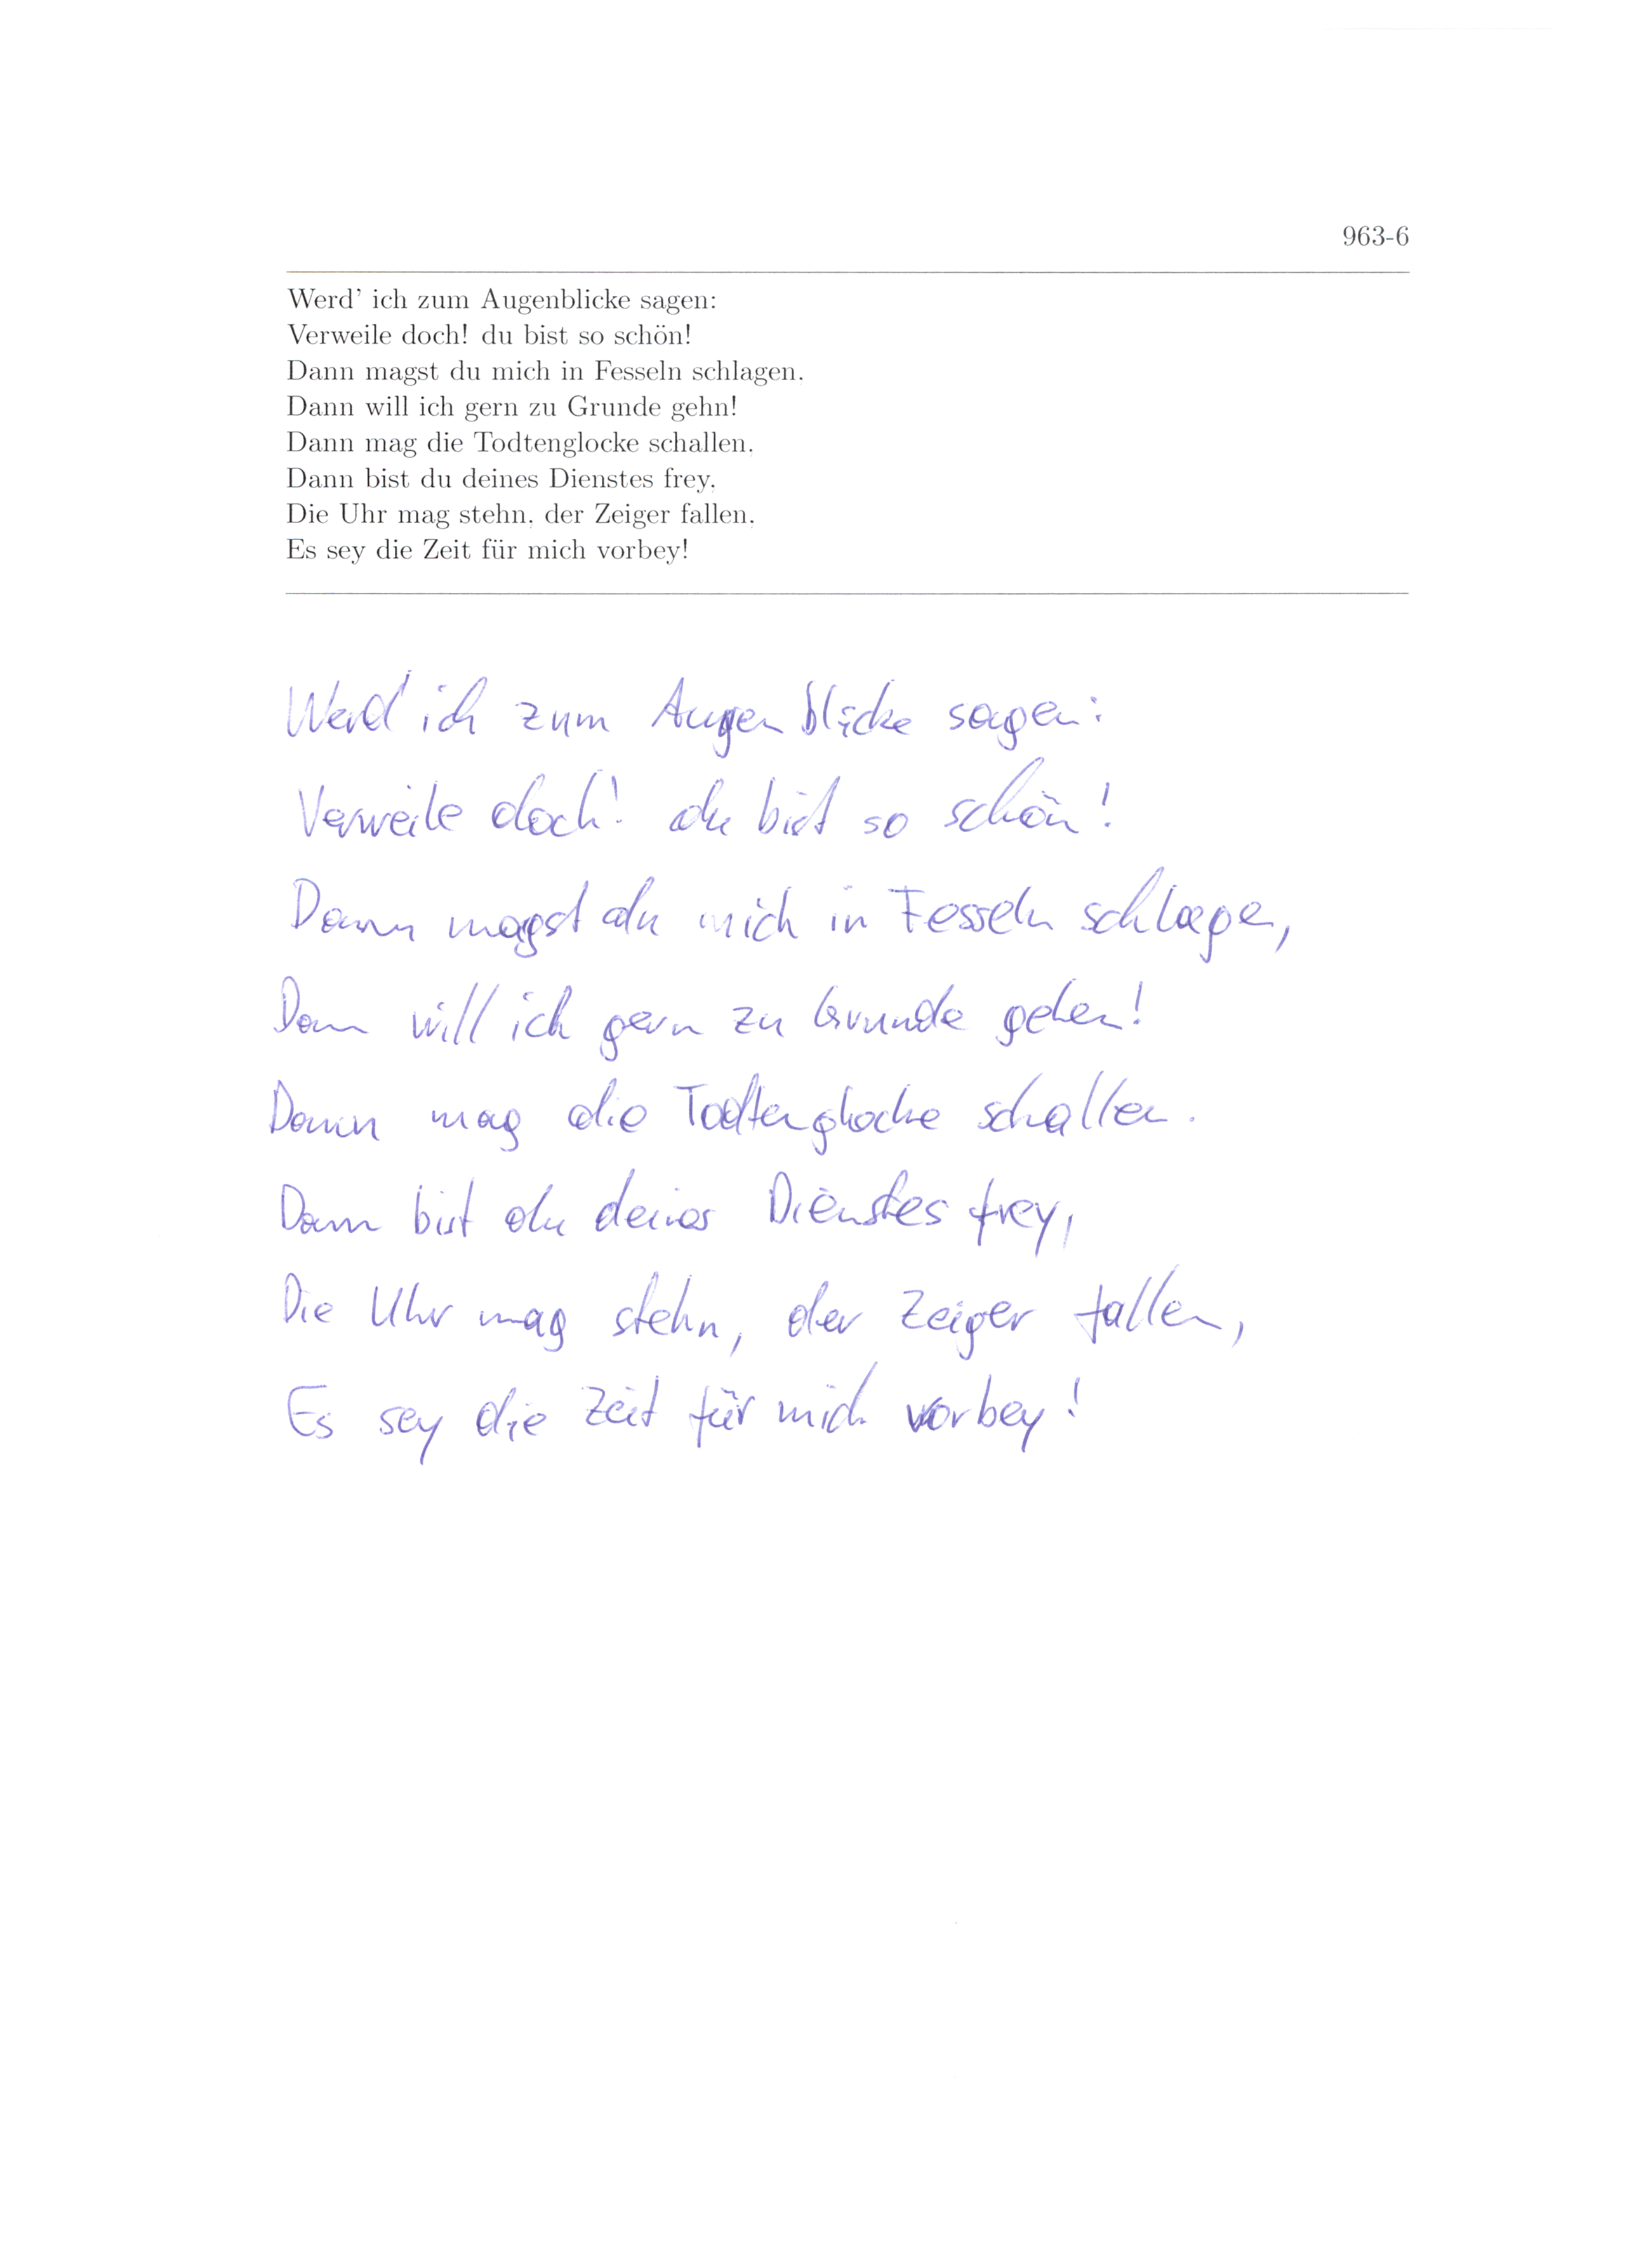 963-6
Werd' ich zum Augenblicke sagen:
Verweile doch! du bist so schön!
Dann magst du mich in Fesseln schlagen,
Dann will ich gern zu Grunde gehn!
Dann mag die Todtenglocke schallen,
Dann bist du deines Dienstes frey,
Die Uhr mag stehn, der Zeiger fallen,
Es sey die Zeit für mich vorbey!
Werd' ich zum Augenblicke sagen:
Verweile doch! du bist so schön!
Dann magst du mich in Fesseln schlagen,
Dann will ich gern zu Grunde gehen!
Dann mag die Todtenglocke schallen.
Dann bist du deines Dienstes frey,
Die Uhr mag stehn, der Zeiger fallen,
Es sey die Zeit für mich vorbey!